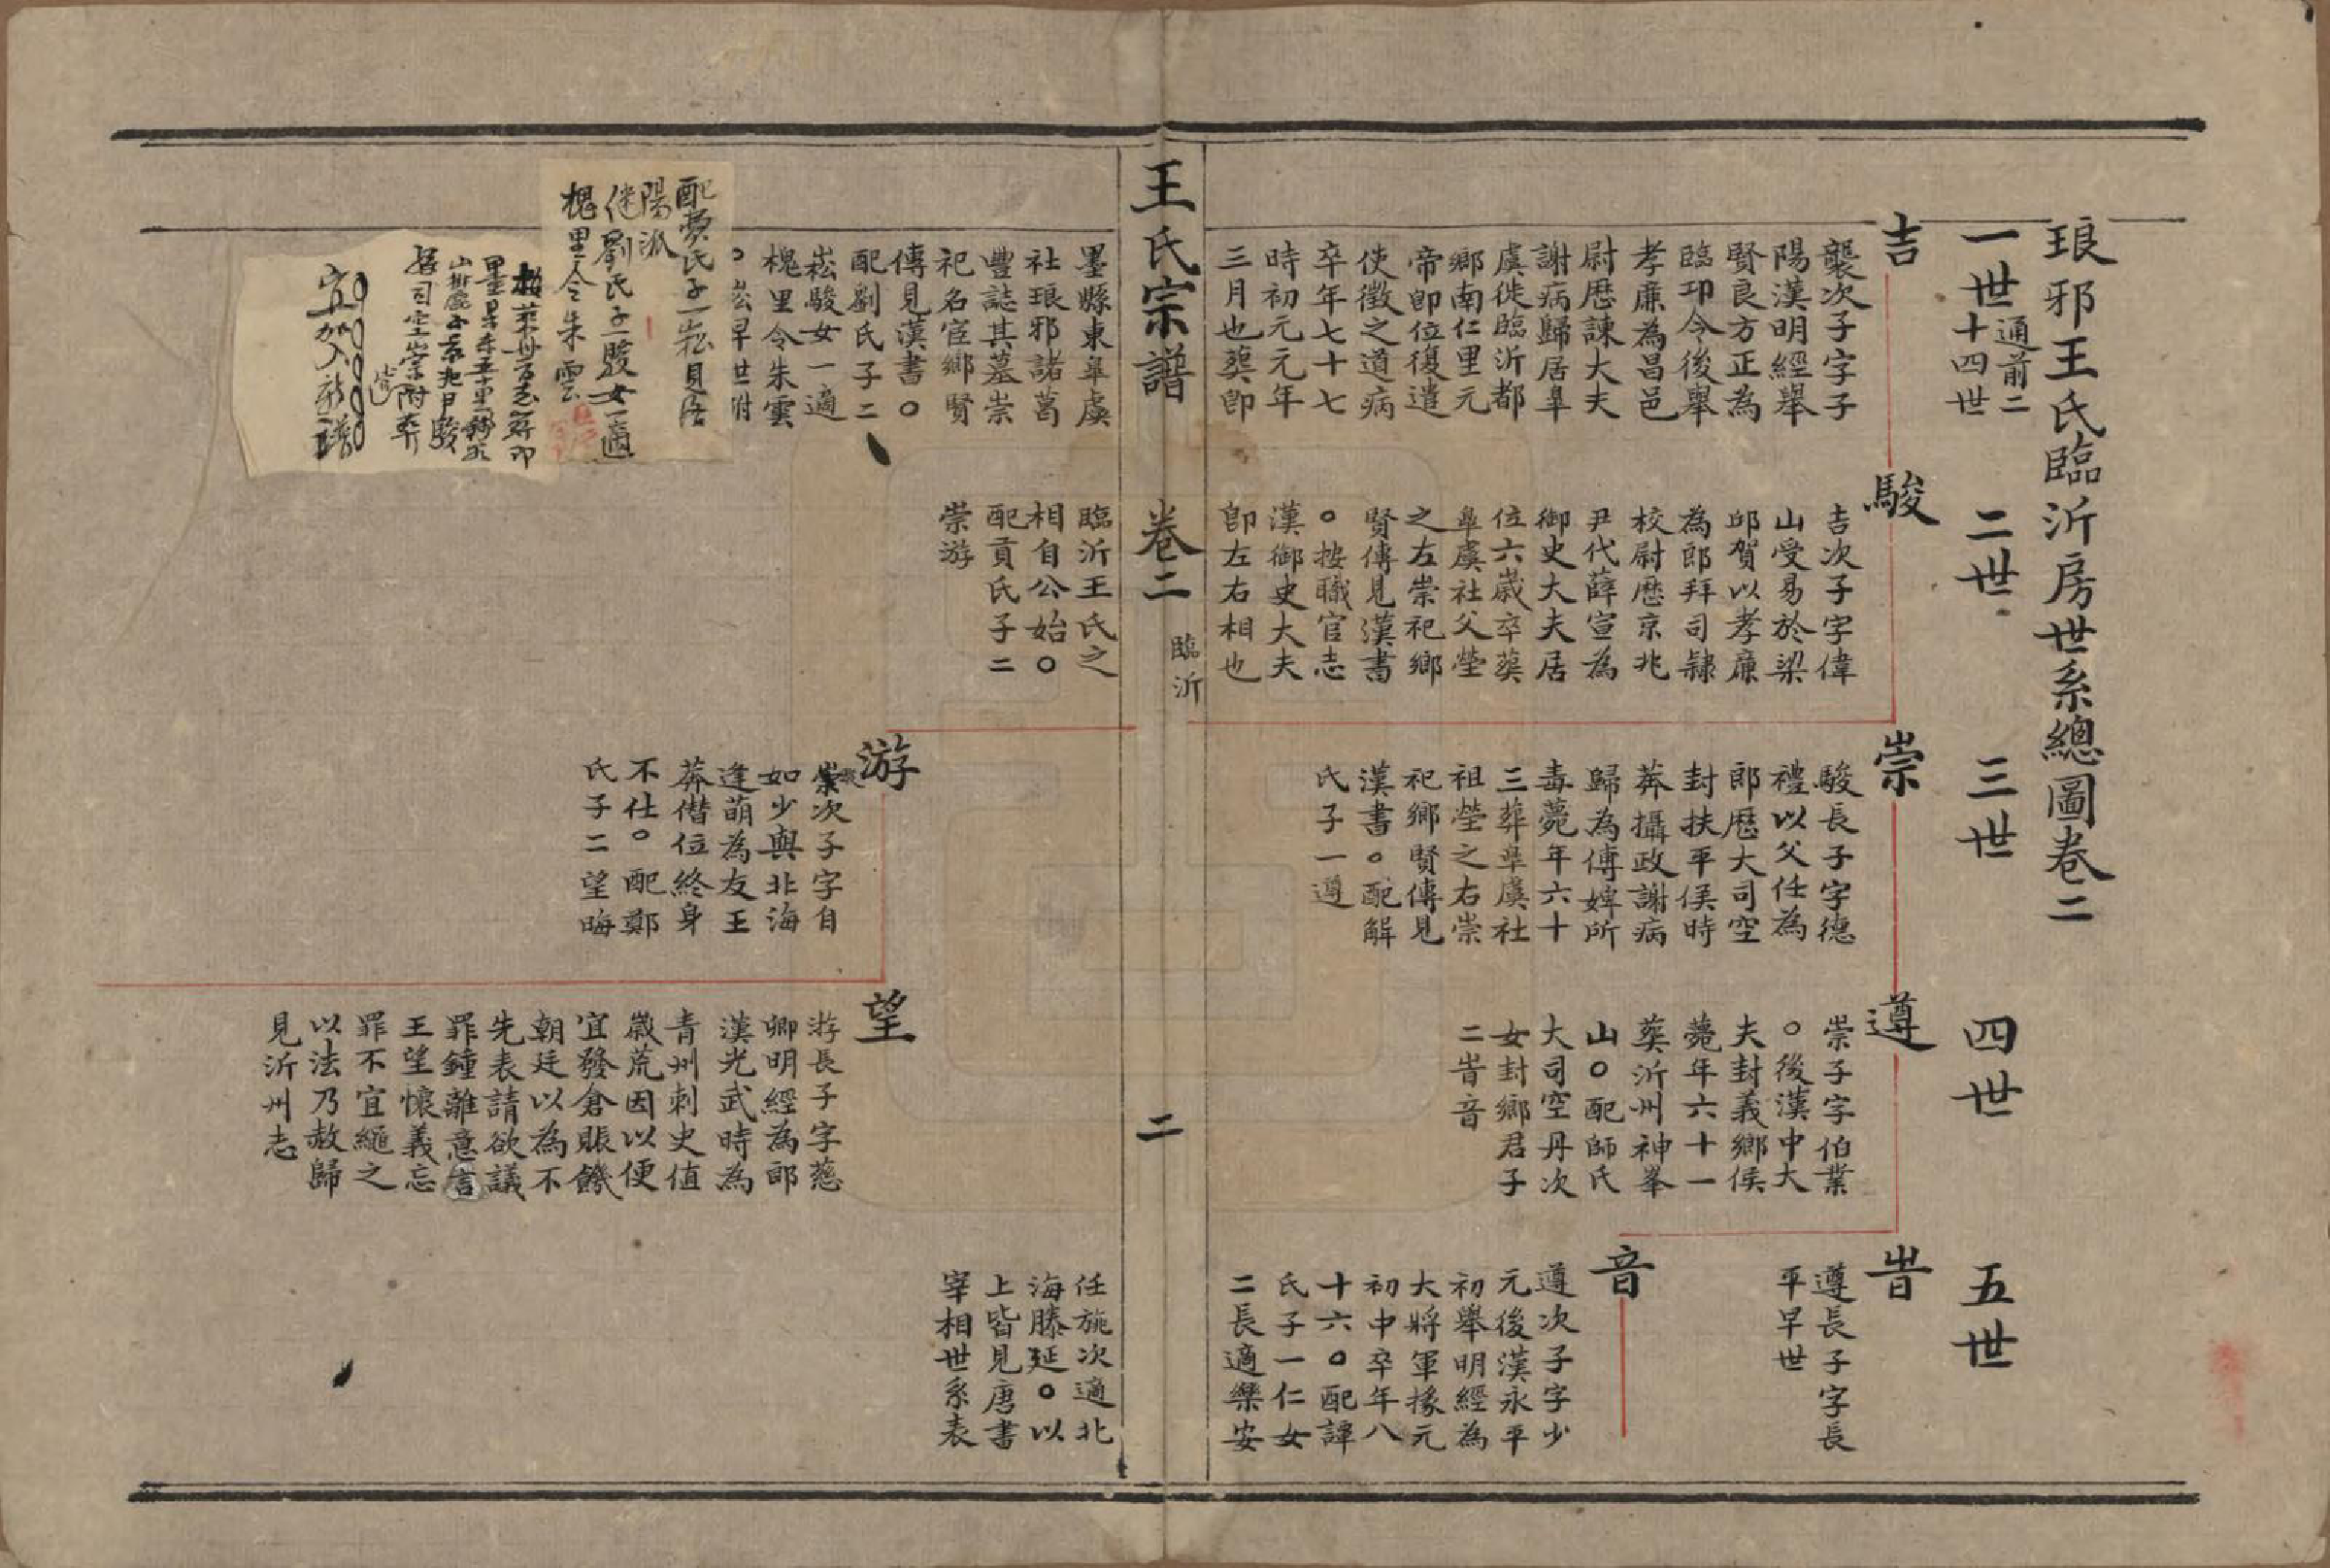 琅邪王氏臨沂房世系總圖卷二
一世通前二十四世
二世
三世
四世
五世
吉
襲次子字子
陽漢明經舉
賢良方正為
臨邛令後舉
孝廉為昌邑
尉歷諫大夫
謝病歸居臯
虞徙臨沂都
鄉南仁里元
帝卽位復遣
使徵之道病
卒年七十七
時初元元年
三月也葬卽
墨縣東臯虞
社琅邪諸葛
豐誌其墓崇
祀名宦鄉賢
傳見漢書〇
配劉氏子二
崧駿女一適
槐里令朱雲
〇崧早世附
配龔氏子一崧見居
陽派
継劉氏子一駿女一適
槐里令朱雲
居司空崇附葬
宜加入新譜
駿
吉次子字偉
山受易於梁
邱賀以孝廉
為郎拜司隸
校尉歷京兆
尹代薛宣為
御史大夫居
位六歲卒葬
臯虞社父塋
之左崇祀鄉
賢傳見漢書
〇按職官志
漢御史大夫
卽左右相也
臨沂王氏之
相自公始〇
配貢氏子二
崇游
崇
駿長子字德
禮以父任為
郎歷大司空
封扶平侯時
莽攝政謝病
歸為傅婢所
毒薨年六十
三葬臯虞社
祖塋之右崇
祀鄉賢傳見
漢書〇配解
氏子一遵
游
次子字自
如少與北海
逄萌為友王
莽僭位終身
不仕〇配鄭
氏子二望晦
遵
崇子字伯業
〇後漢中大
夫封義鄉侯
薨年六十一
葬沂州神峯
山〇配師氏
大司空丹次
女封鄉君子
二旹音
望
游長子字慈
卿明經為郎
漢光武時為
青州刺史值
歲荒因以便
宜發倉賑饑
朝廷以為不
先表請欲議
罪鍾離意言
王望懷義忘
罪不宜繩之
以法乃赦歸
見沂州志
旹
遵長子字長
平早世
音
遵次子字少
元後漢永平
初舉明經為
大將軍掾元
初中卒年八
十六〇配譚
氏子一仁女
二長適樂安
任旐次適北
海滕延〇以
上皆見唐書
宰相世系表
王氏宗譜
卷二
臨沂
二